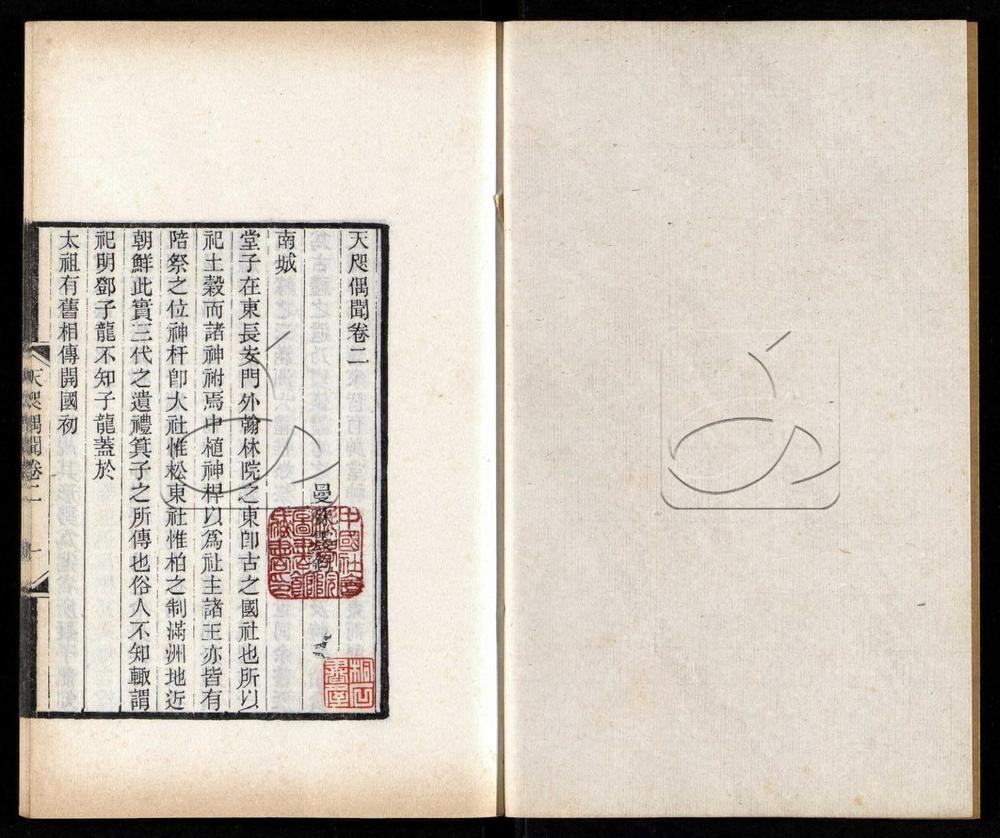 天咫偶聞卷二
曼殊震鈞
南城
堂子在東長安門外翰林院之東卽古之國社也所以
祀土穀而諸神祔焉中植神桿以爲社主諸王亦皆有
陪祭之位神杆卽大社惟松東社惟柏之制滿洲地近
朝鮮此實三代之遺禮箕子之所傳也俗人不知輙謂
祀明鄧子龍不知子龍蓋於
太祖有舊相傳開國初
天咫偶聞卷二
一
中國社會
科學院
圖書館
藏書印